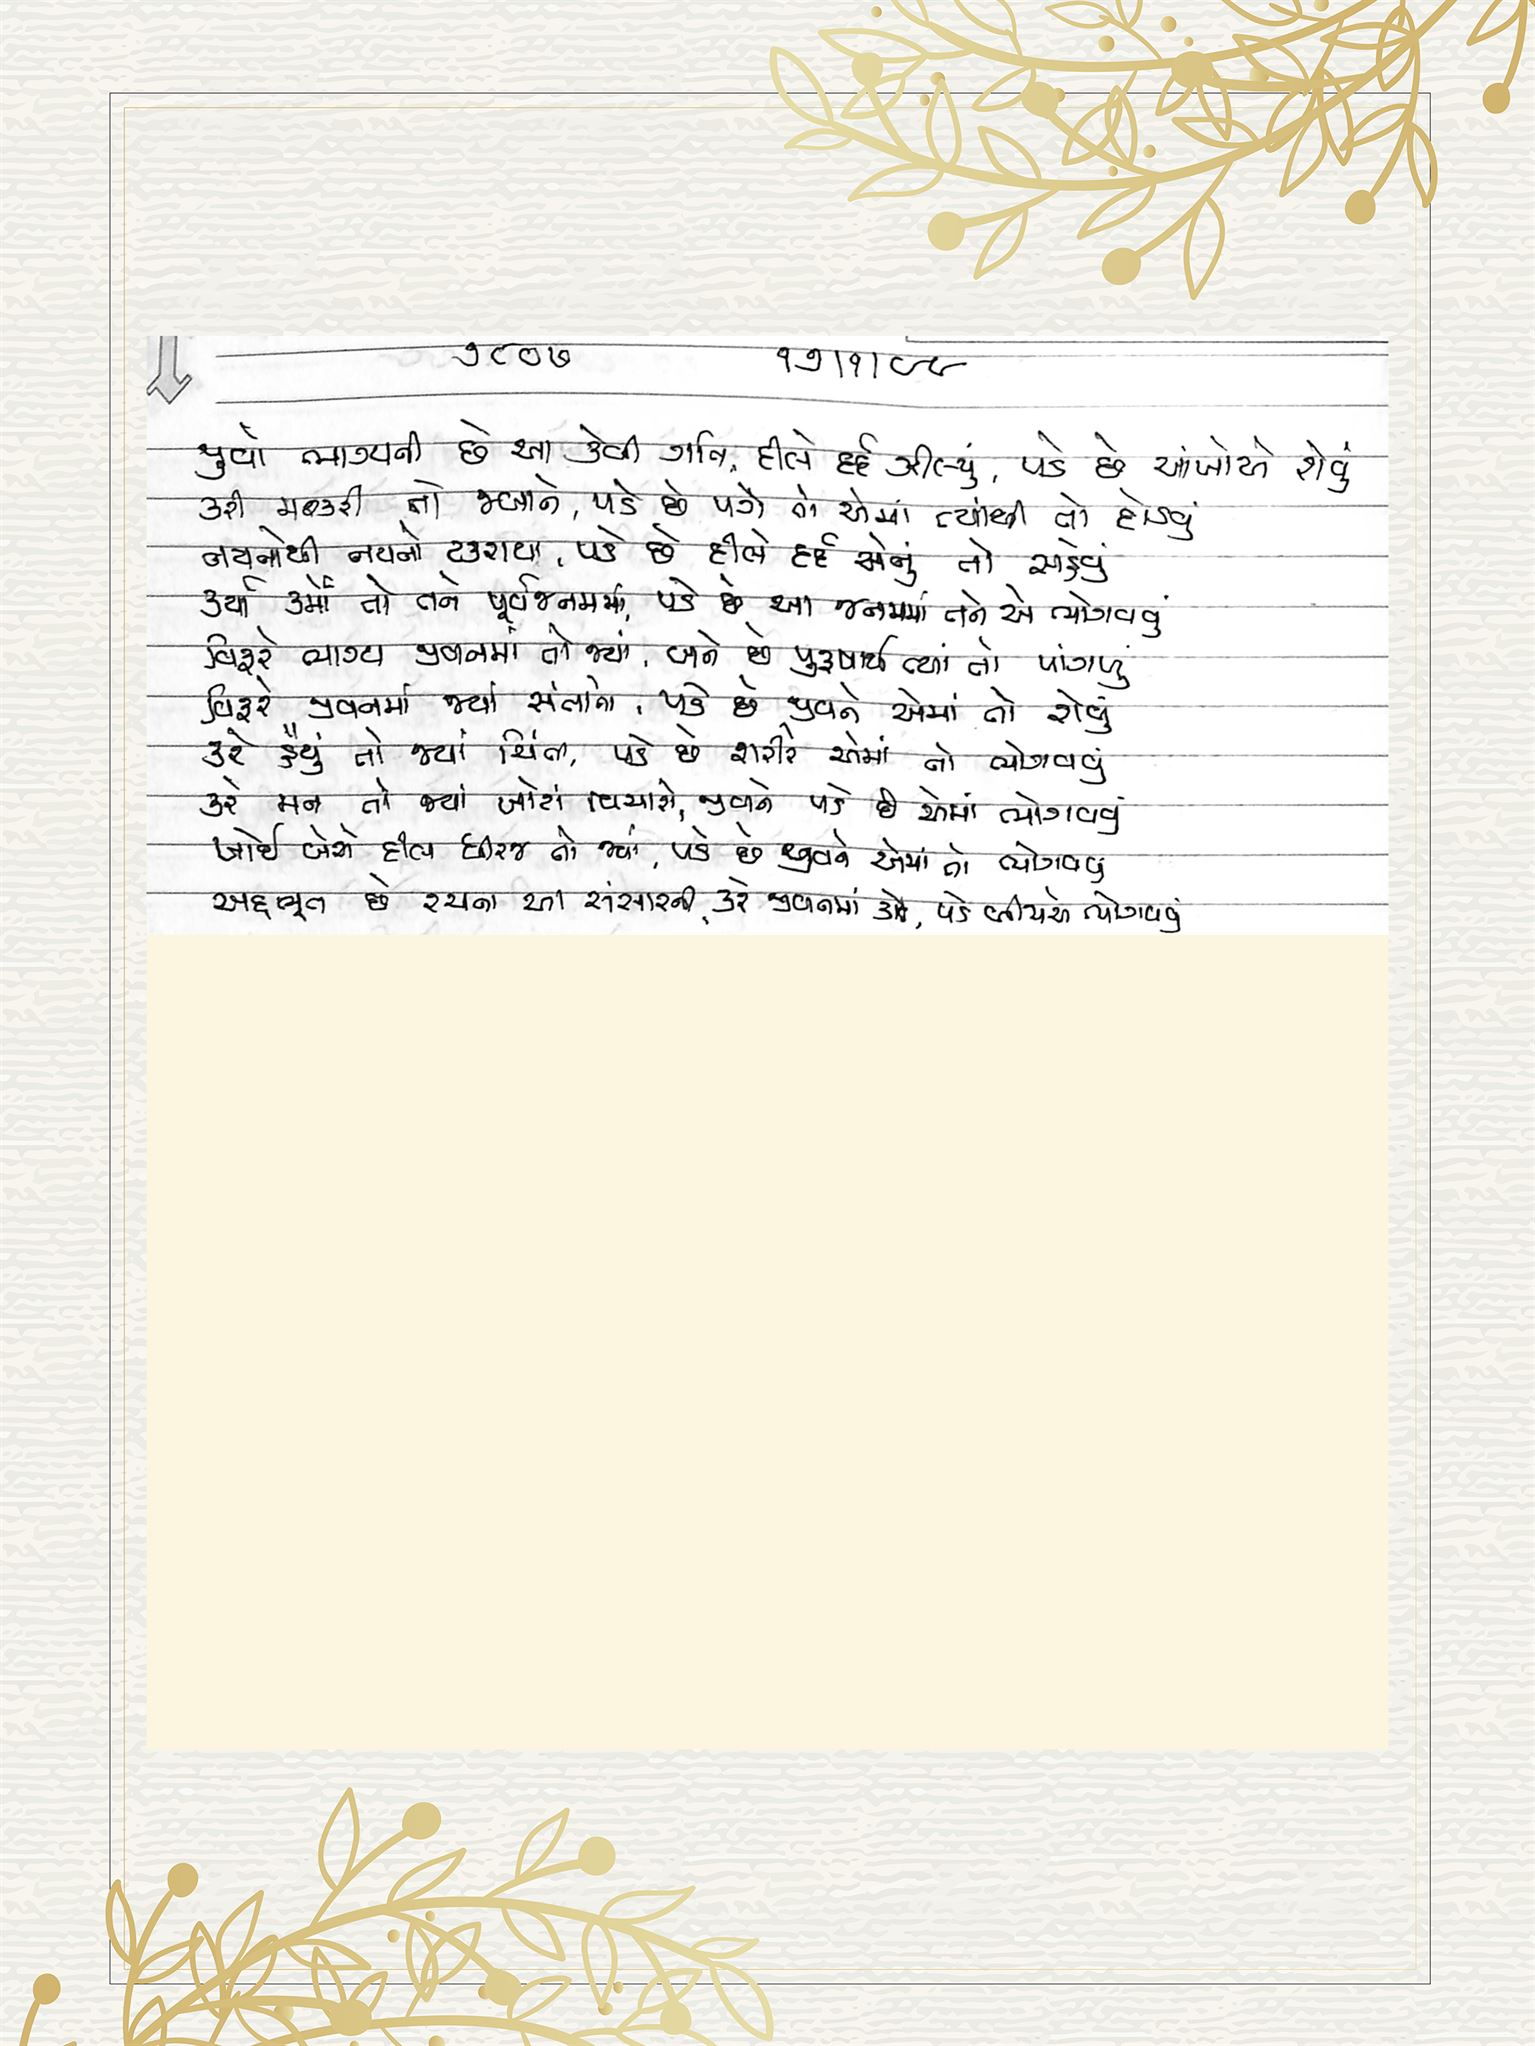 ૭૮૦૭ ૧૭|૧|૯૯
જુવો ભાગ્યની છે આ કેવી ગતિ, દીલે દર્દ ઝીલ્યું, પડે છે આંખોએ રોવું
કરી મશ્કરી તો જબાને, પડે છે પગે તો એમાં ત્યાંથી તો દોડવું
નયનોથી નયનો ટકરાયા, પડે છે દીલે દર્દ એનું તો સહેવું
કર્યા કર્મો તો તને પૂર્વજનમમાં, પડે છે આ જનમમાં તને એ ભોગવવું
વિફરે ભાગ્ય જીવનમાં તો જ્યાં, બને છે પુરૂષાર્થ ત્યાં તો પાંગળું
વિફરે જીવનમાં જ્યાં સંતાનો, પડે છે જીવને એમાં તો રોવું
કરે હૈયું તો જ્યાં ચિંતા, પડે છે શરીરે એમાં તો ભોગવવું
કરે મન તો જ્યાં ખોટાં વિચારો, જીવને પડે છે એમાં ભોગવવું
ખોઈ બેસે દીલ ધીરજ તો જ્યાં, પડે છે જીવને એમાં તો ભોગવવું
અદ્દભૂત છે રચના આ સંસારની, કરે જીવનમાં કોઈ, પડે બીજાએ ભોગવવું